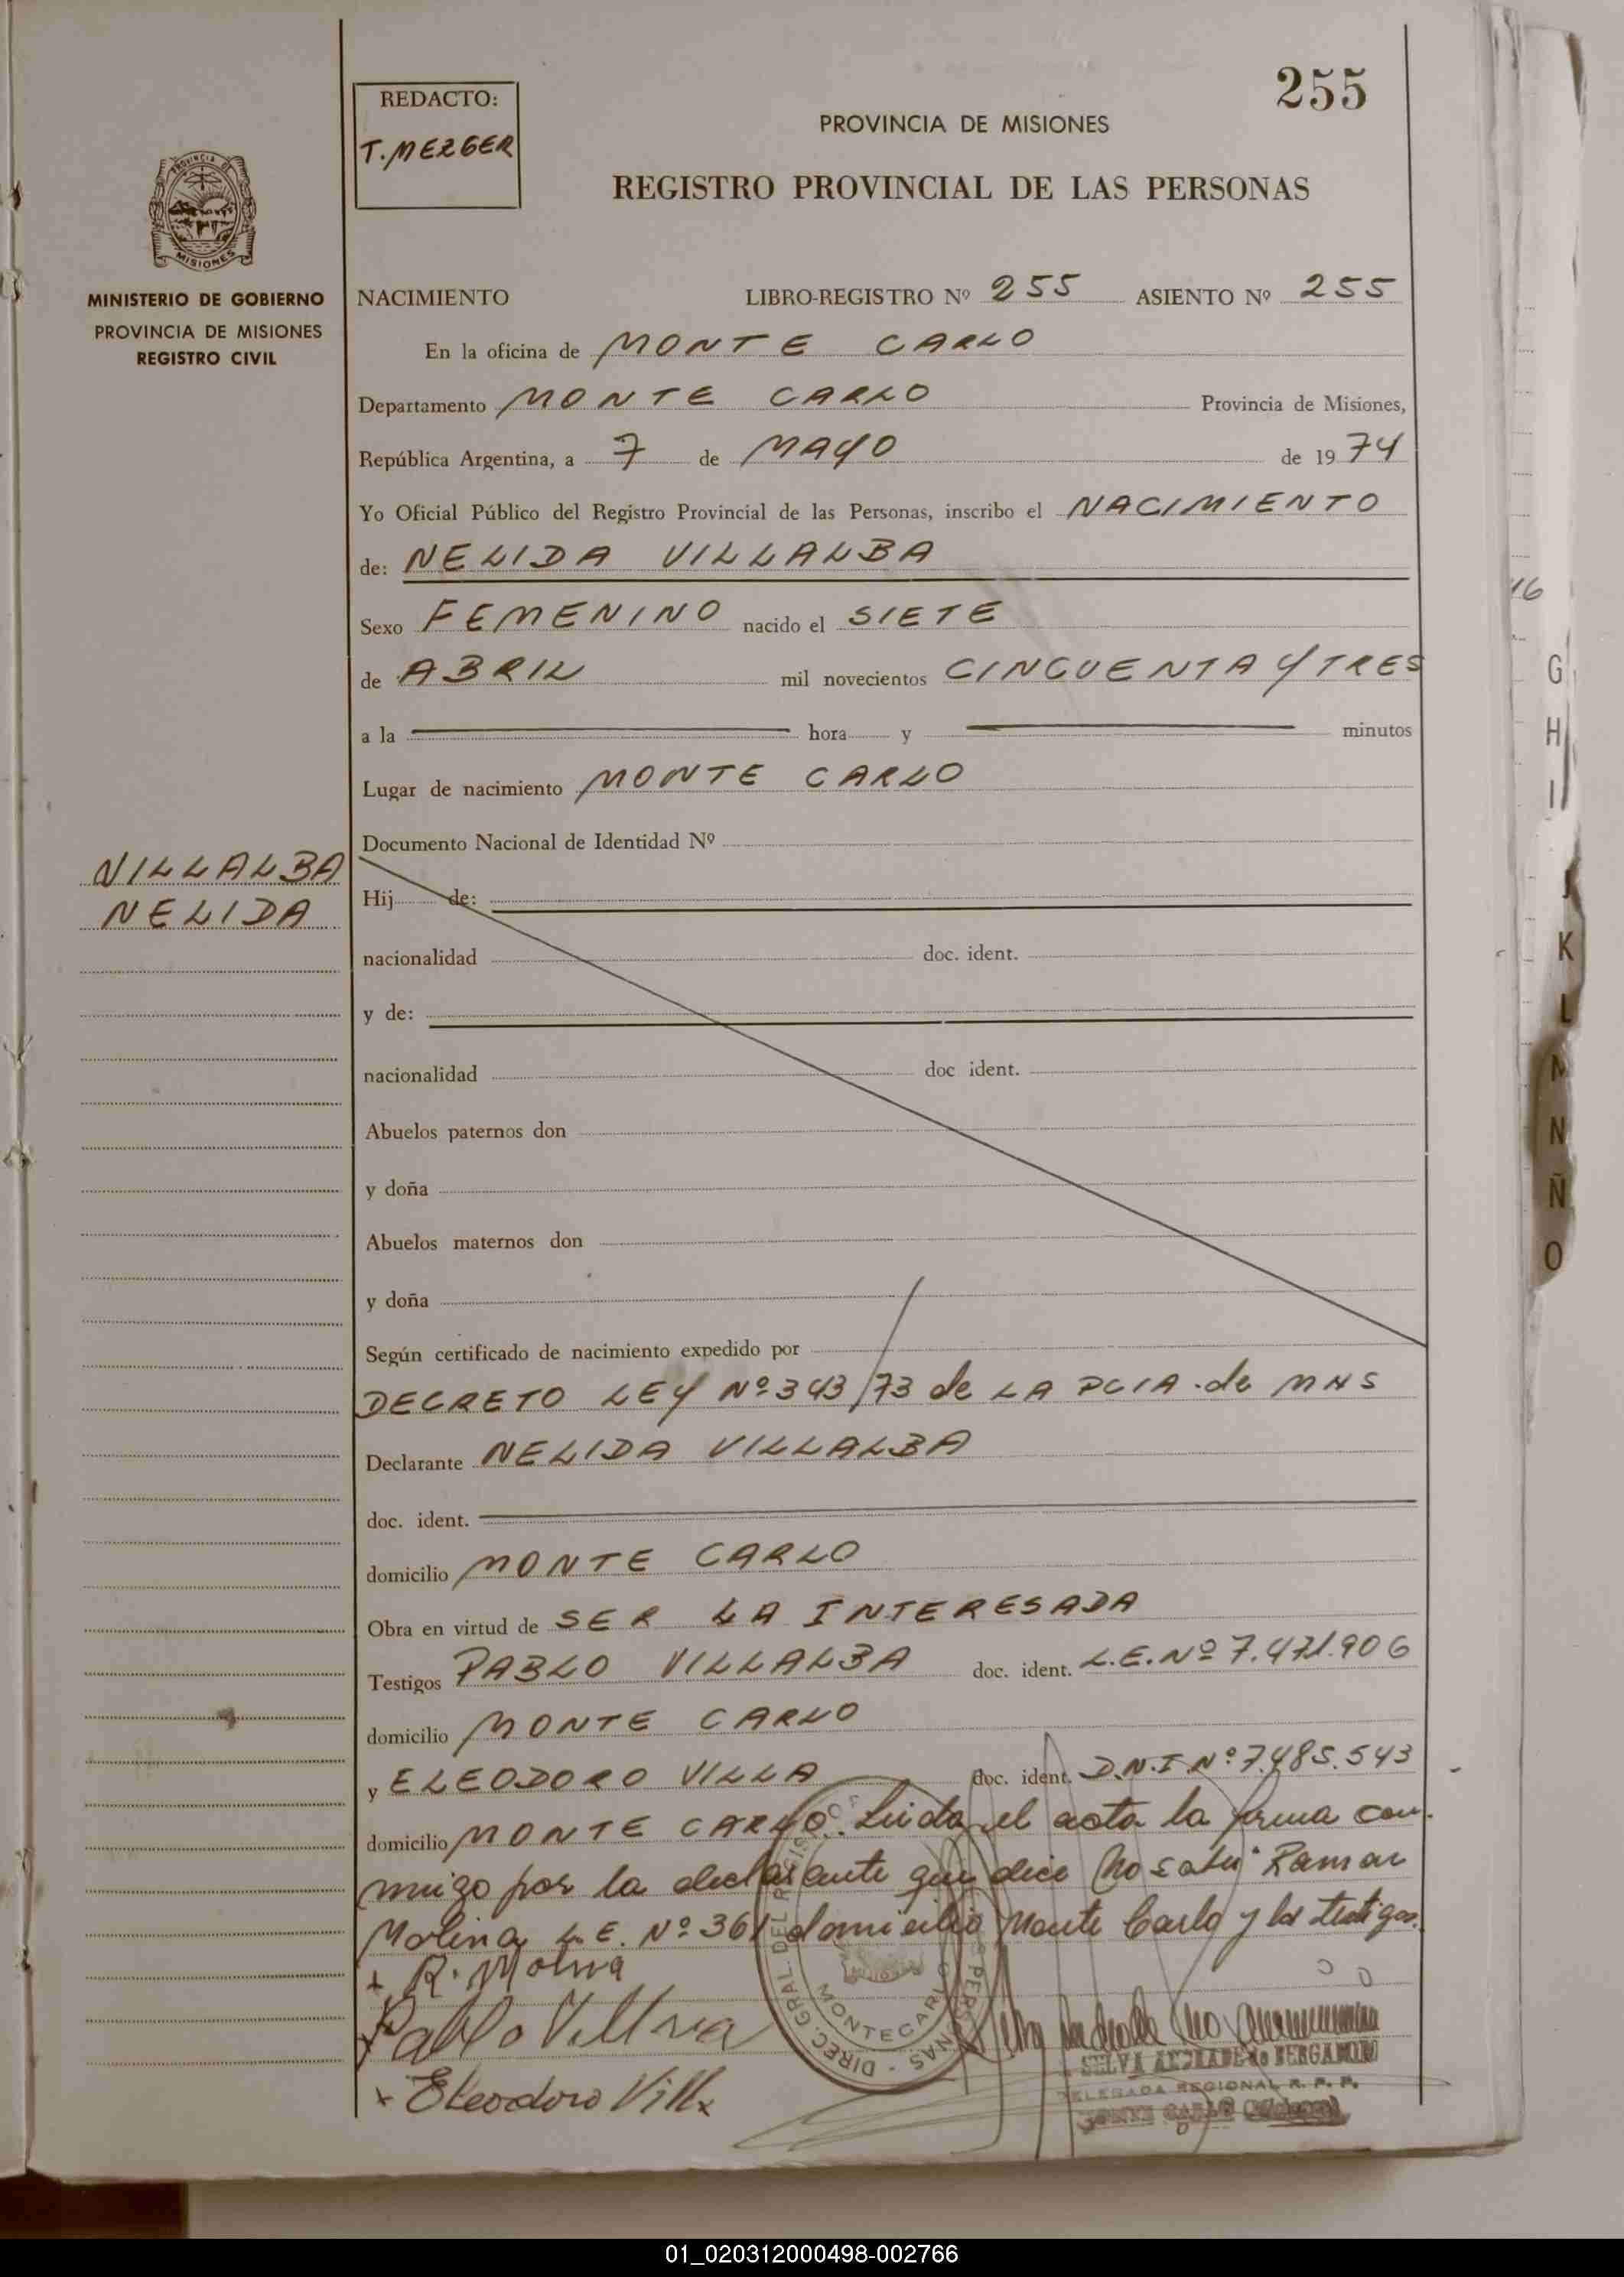 255
REDACTO:
T. MEZGER
PROVINCIA DE MISIONES
REGISTRO PROVINCIAL DE LAS PERSONAS
PROVINCIA DE
MISIONES
MINISTERIO DE GOBIERNO
PROVINCIA DE MISIONES
REGISTRO CIVIL
NACIMIENTO LIBRO-REGISTRO Nº 255 ASIENTO Nº 255
En la oficina de MONTE CARLO
Departamento MONTE CARLO Provincia de Misiones,
República Argentina, a 7 de MAYO de 1974
Yo Oficial Público del Registro Provincial de las Personas, inscribo el NACIMIENTO
de: NELIDA VILLALBA
Sexo FEMENINO nacido el SIETE
de ABRIL mil novecientos CINCUENTA Y TRES
a la hora y minutos
Lugar de nacimiento MONTE CARLO
Documento Nacional de Identidad Nº
VILLALBA
NELIDA
Hij de:
nacionalidad doc. ident.
y de:
nacionalidad doc ident.
Abuelos paternos don
y doña
Abuelos maternos don
y doña
Según certificado de nacimiento expedido por
DECRETO LEY Nº 343/73 de LA PCIA. de MNS
Declarante NELIDA VILLALBA
doc. ident.
domicilio MONTE CARLO
Obra en virtud de SER LA INTERESADA
Testigos PABLO VILLALBA doc. ident. L.E. Nº 7.471.906
domicilio MONTE CARLO
y ELEODORO VILLA doc. ident. D.N.I. Nº 7.485.543
domicilio MONTE CARLO. Leida el acta la firma con-
migo por la declarante que dice no saber Ramon
Molina L.E. Nº 361 domicilio Monte Carlo y los testigos.
+ R. Molina
Eleodoro Villa
DIREC. GRAL. DEL REGISTRO DE PERSONAS
MONTECARLO
SELVA ANDRADE de BERGAMINO
DELEGADA REGIONAL R. P. P.
MONTE CARLO (Misiones)
16
G
H
I
J
K
L
M
N
Ñ
O
01_020312000498-002766